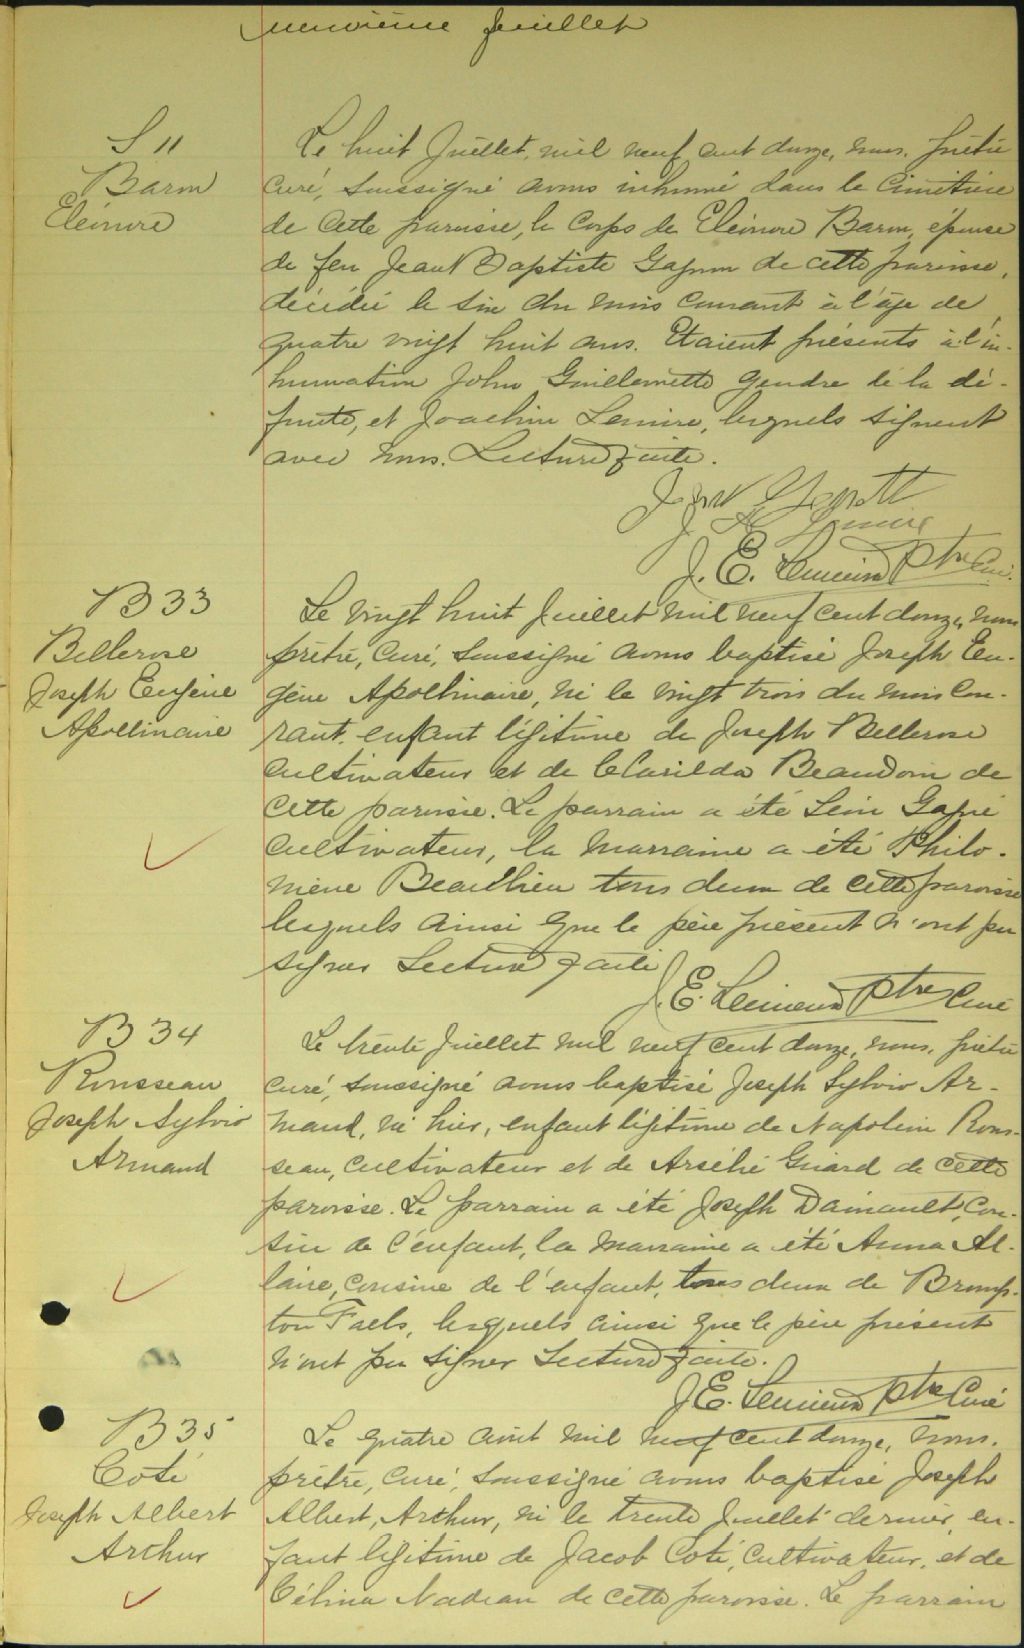 neuvième feuillet
S 11
Baron
Eléonore
Le huit Juillet, mil neuf cent douze, nous, prêtre
curé, soussigné avons inhumé dans le cimetière
de cette paroisse, le corps de Eléonore Baron, épouse
de feu Jean Baptiste Gagnon de cette paroisse,
décédée le six du mois courant à l'âge de
quatre vingt huit ans. Etaient présents à l'in-
humation John Guillemette gendre de la dé-
funte, et Joachim Lemire, lesquels signent
avec nous. Lecture faite.
J Lemire
J. E. Lemieux Ptre Curé.
B 33
Bellerose
Joseph Eugène
Apollinaire
Le vingt huit Juillet mil neuf cent douze, nous
prêtre, curé, soussigné avons baptisé Joseph Eu-
gène Apollinaire, né le vingt trois du mois cou-
rant, enfant légitime de Joseph Bellerose
cultivateur et de Clarilda Beaudoin de
cette paroisse. Le parrain a été Léon Gagné
cultivateur, la marraine a été Philo-
mène Beaulieu tous deux de cette paroisse
lesquels ainsi que le père présent n'ont pu
signer Lecture faite
J. E. Lemieux Ptre Curé
B 34
Rousseau
Joseph Sylvio
Armand
Le trente Juillet mil neuf cent douze, nous, prêtre
curé, soussigné avons baptisé Joseph Sylvio Ar-
mand, né hier, enfant légitime de Napoléon Rous-
seau, cultivateur et de Arsélie Guard de cette
paroisse. Le parrain a été Joseph Daineault, cou-
sin de l'enfant, la marraine a été Anna Al-
laire, cousine de l'enfant, tous deux de Bromp-
ton Falls, lesquels ainsi que le père présent
n'ont pu signer Lecture faite.
J. E. Lemieux Ptre Curé
B 35
Coté
Joseph Albert
Arthur
Le quatre août mil neuf cent douze, nous,
prêtre, curé, soussigné avons baptisé Joseph
Albert, Arthur, né le trente Juillet dernier, en-
fant légitime de Jacob Coté, cultivateur, et de
Célina Nadeau de cette paroisse. Le parrain